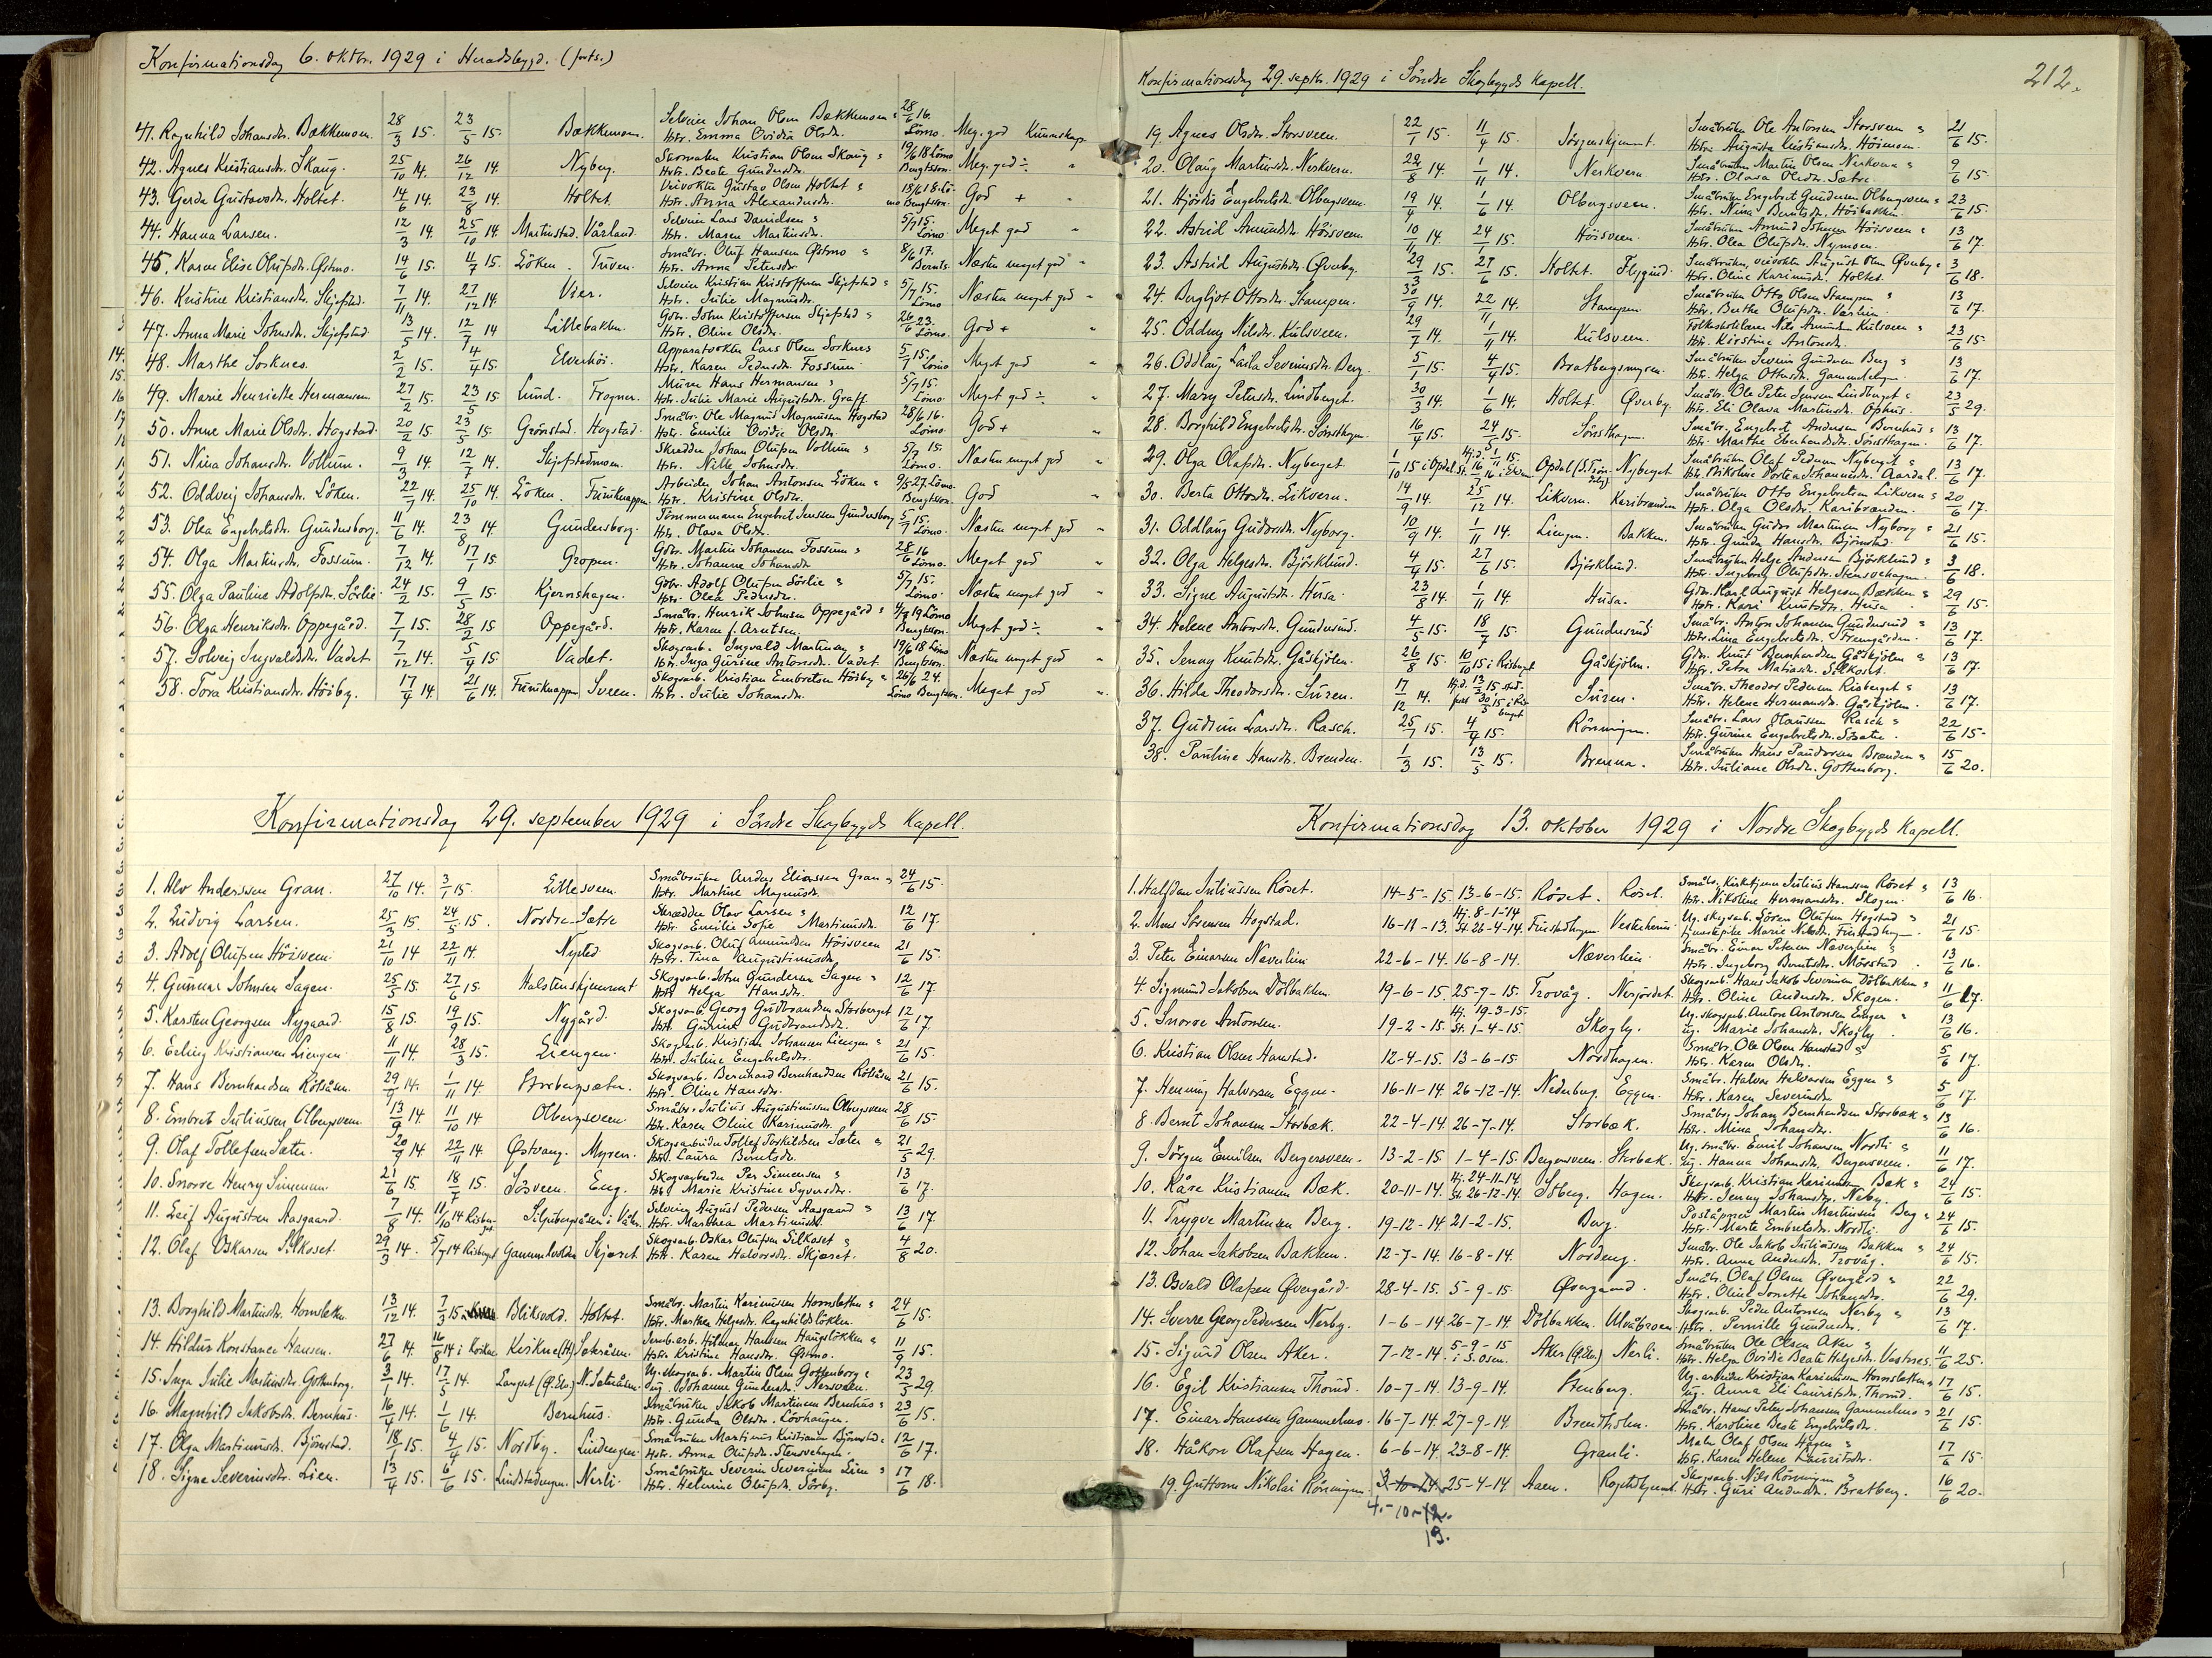 Konfirmationsdag 6. oktbr. 1929 i Heradsbygd. (forts.)
41. Ragnhild Johansdr. Bækkemoen. 28/3 15. 23/5 15. Bækkemoen. Selveier Johan Olsen Bækkemoen Hstr. Emma Ovidia Olsdr. 28/6 16. Lömo. Meg. god Kunnskap
42. Agnes Kristiansdr. Skaug. 25/10 14. 26/12 14. Nyberg. Kristian Olsen Skaug Hstr. Beate Gundersdr. 19/6 18 Lömo Bengtsson. Meg. god ÷ "
43. Gerda Gustavsdr. Holtet. 14/6 14. 23/8 14. Holtet. Veivokter Gustav Olsen Holtet Hstr. Anna Alexandersdr. 18/6 18. Lö- mo Bengtsson. God + "
44. Hanna Larsen. 12/3 14. 25/10 14. Martinstad. Vårland. Selveier Lars Danielsen Hstr. Maren Martinsdr. 5/7 15. Lömo. Meget god "
45. Karen Elise Olufsdr. Østmo. 14/6 15. 11/7 15. Löken. Tuven. Småbr. Oluf Hansen Østmo Hstr. Anna Petersdr. 8/6 17. Bernts. Næsten meget god "
46. Kristine Kristiansdr. Skjefstad. 7/11 14. 27/12 14. Vier. Selveier Kristian Kristoffersen Skjefstad Hstr. Julie Magnusdr. 5/7 15. Lömo Næsten meget god "
47. Anna Marie Johnsdr. Skjefstad. 13/5 14. 12/7 14 Lillebakken. Gbr. John Kristoffersen Skjefstad Hstr. Oline Olsdr. 26/6 23. Lömo. God + "
48. Marthe Sorknes. 2/2 15. 4/4 15. Elverhöi. Apparatvokter Lars Olsen Sorknes Hstr. Karen Pedersdr. Fossum. 5/7 15. Lömo Meget god "
49. Marie Henriette Hermansen 27/2 15. 23/5 15 Lund. Frogner. Murer Hans Hermansen Hstr. Julie Marie Augustsdr. Graff 5/7 15. Lömo. Meget god ÷ "
50. Anne Marie Olsdr. Hogstad. 20/2 15. 23/5 15. Grönstad. Hogstad. Småbr. Ole Magnus Magnussen Hogstad Hstr. Emilie Ovidie Olsdr. 28/6 16. Lömo God + "
51. Nina Johansdr. Vollum. 9/3 14. 12/7 14. Skjefstadmoen. Skredder Johan Olufsen Vollum Hstr. Nille Johnsdr. 5/7 15. Lömo. Næsten meget god "
52. Oddveig Johansdr. Löken. 22/7 14. 25/10 14. Löken. Furuknappen. Arbeider Johan Antonsen Löken Hstr. Kristine Olsdr. 9/5 27. Lömo. Bengtsson. God "
53. Olea Engebretsdr. Gundersborg. 11/6 14. 23/8 14. Gundersborg. Tömmermann Engebret Jensen Gundersborg Hstr. Olava Olsdr. 5/7 15. Lömo. Næsten meget god "
54. Olga Martinsdr. Fossum. 7/12 14. 17/1 15. Gropen. Gbr. Martin Johansen Fossum Hstr. Johanne Johansdr. 28/6 16 Lömo. Meget god "
55. Olga Pauline Adolfsdr. Sörlie. 24/2 15. 9/5 15. Kjernshagen. Gbr. Adolf Olufsen Sörlie Hstr. Olea Pedersdr. 5/7 15. Lömo. Næsten meget god "
56. Olga Henriksdr. Oppegård. 7/1 15. 28/2 15 Oppegård. Småbr. Henrik Johnsen Oppegård Hstr. Karen f. Arntsen. 4/7 19 Lömo Bengtsson. Meget god ÷ "
57. Solveig Ingvaldsdr. Vadet 7/12 14. 5/4 15. Vadet. Skogsarb. Ingvald Martinsen Hstr. Inga Gurine Antonsdr. Vadet 19/6 18 Lömo Bengtsson. Næsten meget god "
58. Tora Kristiansdr. Höiby. 17/4 14. 21/6 14. Furuknappen Sveen. Skogsarb. Kristian Embretsen Höiby Hstr. Julie Johansdr. 26/6 24. Lömo Bengtsson. Meget god "
Konfirmationsdag 29. september 1929 i Söndre Skogbygds Kapell.
1. Alv Anderssen Gran. 27/10 14. 3/1 15. Lillesveen. Småbruker Anders Eliassen Gran Hstr. Martine Magnusdr. 24/6 15.
2. Ludvig Larsen. 25/3 15. 24/5 15. Nordre-Sætre Skredder Olav Larsen Hstr. Emilie Sofie Martinusdr. 12/6 17
3. Adolf Olufsen Höisveen. 21/10 14 22/11 14. Nysted Skogsarb. Oluf Amundsen Höisveen Hstr. Tina Augustinusdr. 21/6 15.
4. Gunnar Johnsen Sagen. 25/5 15. 27/6 15. Halstenskjernmet Skogsarb. John Gundersen Sagen Hstr. Helga Hansdr. 12/6 17
5. Karsten Georgsen Nygaard. 15/8 15. 19/9 15. Nygård. Skogsarb. Georg Gudbrandsen Storberget Hstr. Gurine Gudbrandsdr. 12/6 17
6. Erling Kristiansen Liengen. 11/11 14. 28/3 15. Liengen. Skogsarb. Kristian Johansen Liengen Hstr. Juline Engebretsdr. 21/6 15.
7. Hans Bernhardsen Kölåsen. 29/9 14. 1/11 14. Storbergsæter. Skogsarb. Bernhard Bernhardsen Kölåsen Hstr. Oline Hansdr. 21/6 15.
8. Embret Juliussen Olbergsveen. 13/9 14 11/10 14 Olbergsveen Småbr. Julius Augustinussen Olbergsveen Hstr. Karen Oline Karinusdr. 28/6 15.
9. Olaf Tollefsen Sæter. 20/9 14 22/11 14. Østvang. Myren. Skogsarbeider Tollef Torkildsen Sæter Hstr. Laura Berntsdr. 21/5 29.
10. Snorre Henry Simensen. 21/6 15. 18/7 15. Lösveen. Eng. Skogsarbeider Per Simensen Hstr. Marie Kristine Syversdr. 13/6 17.
11. Leif Augustsen Aasgaard. 7/8 14. 11/10 14 Risber- get Siljubergsåsen i Våler. Selveier August Pedersen Aasgaard Hstr. Marthea Martinusdr. 13/6 17.
12. Olaf Oskarsen Silkoset. 29/3 14. 5/7 14 Risberget Gammelsetra Skjæret Skogsarb. Oskar Olufsen Silkoset Hstr. Karen Halvorsdr. Skjæret. 4/8 20.
13. Borghild Martinsdr. Hornsletten. 13/12 14. 7/3 15. Bliksvold. Holtet. Småbr. Martin Karinussen Hornsletten Hstr. Marthea Helgesdr. Ragnhildslökken. 24/6 15.
14. Hildur Konstance Hansen. 27/6 14. 16/8 14 i Koirkne Kirkne (H) Sætråsen. Jernb.arb. Hilmar Hansen Haugslökken Hstr. Kristine Hansdr. Østmo. 11/9 15.
15. Inga Julie Martinsdr. Gottenborg. 3/1 14. 17/5 14. Langset (Ø.Elv.) N. Sætråsen. Ug. skogsarb. Martin Olsen Gottenborg ug. Johanne Gundersdr. Nersveen. 23/5 29.
16. Magnhild Jakobsdr. Bernhus. 16/4 14. 1/6 14. Bernhus. Småbruker Jakob Martinsen Bernhus Hstr. Gunda Olsdr. Lövhaugen. 23/6 15.
17. Olga Martinusdr. Björnstad. 18/1 15. 4/4 15. Nordby. Lindengen. Småbruker Martinus Kristiansen Björnstad Hstr. Anna Olufsdr. Stensvehagen. 12/6 17.
18. Signe Severinsdr. Lien. 13/4 15. 6/6 15. Lindstadengen. Nerli. Småbruker Severin Severinsen Lien Hstr. Helmine Olufsdr. Sörby. 17/6 18.
212.
Konfirmationsdag 29. septbr. 1929 i Söndre Skogbygds Kapell.
19. Agnes Olsdr. Storsveen. 22/1 15. 11/4 15. Jörgenskjernmet. Småbruker Ole Antonsen Storsveen Hstr. Augusta Kristiansdr. Höimoen. 21/6 15.
20. Olaug Martinsdr. Nerkvern. 22/8 14. 1/11 14. Nerkvern Småbruker Martin Olsen Nerkvern Hstr. Olava Olsdr. Sætre. 9/6 15.
21. Hjördis Engebretsdr. Olbergsveen. 19/4 14. 1/6 14. Olbergsveen. Småbruker Engebret Gundersen Olbergsveen Hstr. Nina Berntsdr. Höibakken. 23/6 15.
22. Astrid Amundsdr. Höisveen. 10/11 14. 24/1 15. Höisveen. Småbruker Amund Johnsen Höisveen Hstr. Olea Olufsdr. Nymoen. 13/6 17.
23. Astrid Augustsdr. Øverby. 29/3 15. 27/6 15. Holtet. Flygind. Småbruker, veivokter August Olsen Øverby Hstr. Oline Karinusdr. Holtet. 3/6 18.
24. Bergljot Ottosdr. Stampen. 30/9 14. 22/11 14. Stampen. Småbruker Otto Olsen Stampen Hstr. Berthe Olufsdr. Værlien. 13/6 17.
25. Oddny Nilsdr. Kulsveen. 29/7 14. 1/11 14. Kulsveen. Folkeskolelærer Nils Amundsen Kulsveen Hstr. Kirstine Antonsdr. 23/6 15.
26. Oddlaug Laila Severinsdr. Berg. 5/1 15. 4/4 15. Bratbergsmyren. Småbruker Severin Gundersen Berg Hstr. Helga Ottersdr. Gammelengen. 13/6 17.
27. Mary Petersdr. Lindberget. 30/3 14. 1/6 14. Holtet. Øverby. Småbr. Ole Peter Jensen Lindberget Hstr. Eli Olava Martinsdr. Ophus. 23/5 29.
28. Borghild Engebretsdr. Sörsthagen. 16/4 15. 24/5 15. Sörsthagen. Småbr. Engebret Andersen Bernhus Hstr. Marthe Eberhardsdr. Sörsthagen. 13/6 17.
29. Olga Olafsdr. Nyberget 1/10 15 i Opdal Hj.d. 1/11 15. St. 16/7 16 i Elverum Opdal (S. Trön- delag) Nyberget. Småbruker Olaf Pedersen Nyberget Hstr. Nikoline Dortea Johannesdr. Aardal. 13/6 17.
30. Berta Ottosdr. Likvern. 14/9 14. 25/12 14. Likvern. Karibranden Småbruker Otto Engebretsen Likvern Hstr. Olga Olsdr. Karibranden. 20/6 17.
31. Oddlaug Gudersdr. Nyborg. 10/9 14. 1/11 14. Liengen. Bakken. Småbruker Guder Martinsen Nyborg Hstr. Gunda Hansdr. Björnstad. 21/6 15.
32. Olga Helgesdr. Björklund. 4/4 15. 27/6 15. Björklund. Småbruker Helge Andersen Björklund Hstr. Ingeborg Olufsdr. Stensvehagen. 3/6 18.
33. Signe Augustsdr. Husa. 23/8 14. 1/11 14. Husa. Gbr. Karl August Helgesen Bækken Hstr. Kari Knutsdr. Husa. 29/6 15.
34. Helene Antonsdr. Gundersrud. 4/5 15. 18/7 15. Gundersrud Småbr. Anton Johansen Gundersrud Hstr. Lina Engebretsdr. Fremgården. 13/6 17.
35. Jenny Knutsdr. Gåskjölen. 26/8 15. 10/10 15 i Risberget Gåskjölen. Gbr. Knut Bernhardsen Gåskjölen Hstr. Petra Matiasdr. Silkoset. 13/6 17.
36. Hilda Theodorsdr. Suren. 17/12 14. Hj.d. 13/3 15. stad- fest 30/5 15 i Ris- berget Suren. Småbr. Theodor Pedersen Risberget Hstr. Helene Hermansdr. Gåskjölen. 13/6 17.
37. Gudrun Larsdr. Rasch. 25/1 15. 4/4 15. Rönningen. Småbr. Lars Hansen Rasch Hstr. Gurine Engebretsdr. Sörsæter. 22/6 15.
38. Pauline Hansdr. Brenden. 1/3 15. 13/5 15. Brenna. Småbruker Hans Paudersen Brænden Hstr. Juliane Olsdr. Gottenborg. 15/6 20.
Konfirmationsdag 13. oktober 1929 i Nordre Skogbygds Kapell.
1. Halfdan Juliussen Röset. 14-5-15. 13-6-15. Röset. Röset. Småbr., Kirketjener Julius Hanssen Röset Hstr. Nikoline Hermansdr. Skogen. 13/6 16.
2. Mons Sörensen Hogstad. 16-11-13. Hj. 8-1-14 St. 26-4-14. Furustadhagen. Vesterheim Ug. skogsarb. Sören Olufsen Hogstad tjenestepike Marie Nilsdr. Furustadhagen. 21/6 15.
3. Peter Einarsen Næverlien 22-6-14. 16-8-14. Næverlien. Småbr. Einar Petersen Næverlien Hstr. Ingeborg Berntsdr. Mörstad. 13/6 16.
4. Sigmund Jakobsen Dölbakken. 19-6-15. 25-7-15. Trovåg. Nerjordet. Skogsarb. Hans Jakob Severinsen Dölbakken Hstr. Oline Andersdr. Skogen. 11/6 17.
5. Snorre Antonsen. 19-2-15. Hj. 19-3-15. St. 1-4-15. Skogly. Ug. skogsarb. Anton Antonsen Enger ug. Marie Johansdr. Skogly. 13/6 16.
6. Kristian Olsen Hanstad. 12-4-15. 13-6-15 Nordhagen. Småbr. Ole Olsen Hanstad Hstr. Karen Olsdr. 5/6 17.
7. Henning Halvorsen Eggen. 16-11-14. 26-12-14. Nederberg. Eggen. Småbr. Halvor Halvorsen Eggen Hstr. Karen Severinsdr. 5/6 17.
8. Bernt Johansen Storbæk. 22-4-14. 26-7-14. Storbæk. Småbr. Johan Bernhardsen Storbæk Hstr. Mina Johansdr. 13/6 16.
9. Jörgen Emilsen Bergersveen. 13-2-15. 1-4-15. Bergersveen. Storbæk. Ug. småbr. Emil Johansen Nordli ug. Hanna Johansdr. Bergersveen. 11/6 17.
10. Kåre Kristiansen Bæk. 20-11-14. Hj. 24-11-14. St. 26-12-14. Stberg. Hagen. Skogsarb. Kristian Karinussen Bæk Hstr. Jenny Johansdr. Neby. 24/6 15.
11. Trygve Martinsen Berg. 19-12-14 21-2-15. Berg. Poståpner Martin Martinsen Berg Hstr. Marte Embretsdr. Nordli. 24/6 15.
12. Johan Jakobsen Bakken. 12-7-14. 16-8-14. Nordeng. Småbr. Ole Jakob Juliussen Bakken Hstr. Anna Andersdr. Trovåg. 24/6 15.
13. Osvald Olafsen Øvergård. 28-4-15. 5-9-15 Øvergaard. Småbr. Olaf Olsen Øvergård Hstr. Oline Jonette Johansdr. 22/6 29.
14. Sverre Georg Pedersen Nerby. 1-6-14 26-7-14 Dölbakken. Ulvåbroen. Skogsarb. Peder Antonsen Nerby Hstr. Pernille Gundersdr. 13/6 17.
15. Sigurd Olsen Aker. 7-12-14. 5-9-15 i S. Osen. Aker (Ø.Elv.) Nerli. Småbruker Ole Olsen Aker Hstr. Helga Ovidie Beate Helgesdr. Vastnes. 11/6 25.
16. Egil Kristiansen Thorud. 10-7-14. 13-9-14. Stenberg. Ug. arbeider Kristian Karinussen Hornsletten ug. Anna Eli Lauritsdr. Thorud. 17/6 15.
17. Einar Hanssen Gammelmo. 16-7-14. 27-9-14. Brendholen. Småbr. Hans Peter Johansen Gammelmo Hstr. Karoline Beate Engebretsdr. 21/6 15.
18. Håkon Olafsen Hagen. 6-6-14. 23-8-14. Granli. Maler Olaf Olsen Hagen Hstr. Karen Helene Lauritsdr. 17/6 15.
19. Guttorm Nikolai Rönningen. 3-10-14. 25-4-14. Aaen. Skogsarb. Nils Rönningen Hstr. Guri Andersdr. Bratberg. 16/6 20.
4.-10-12.
13.